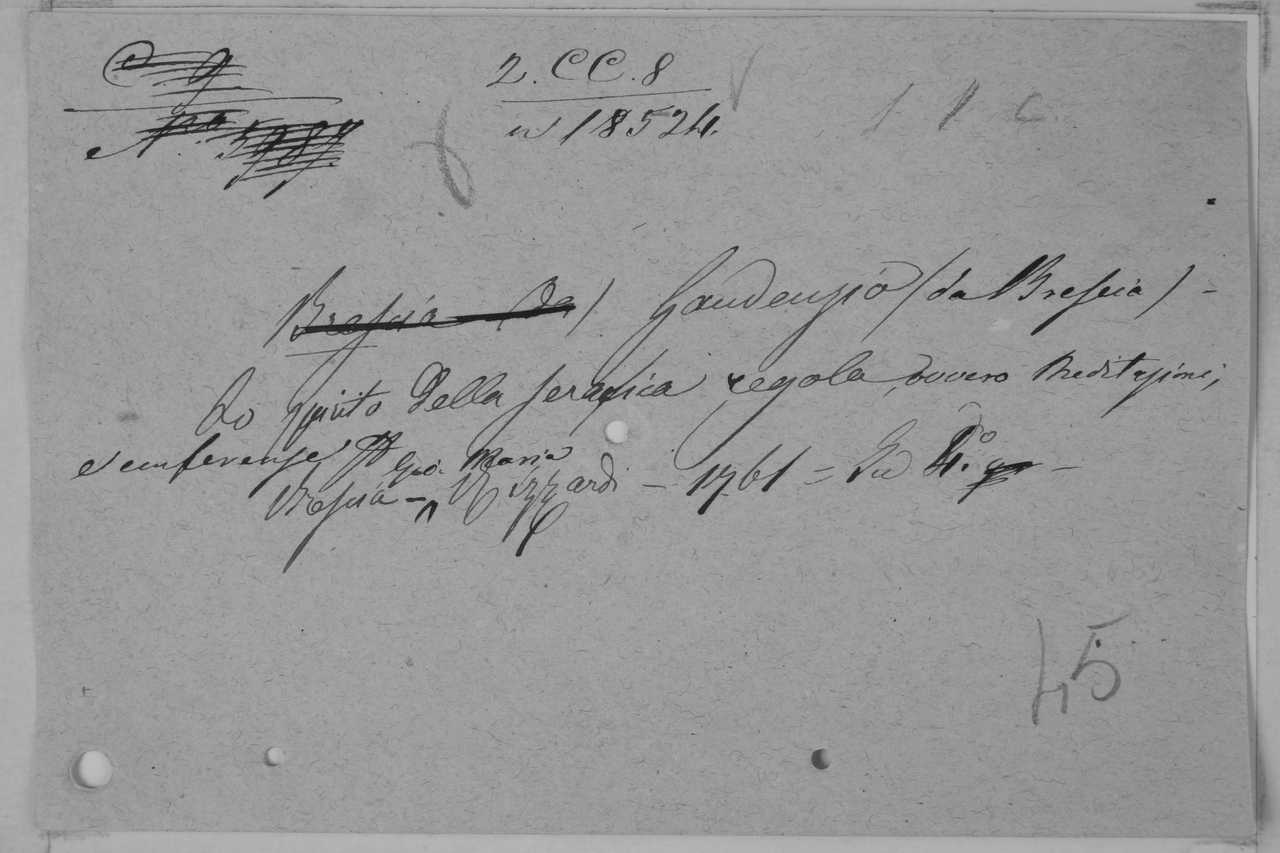 2. CC. 8
n 18524.
1 1 c.
Brescia (da) Gaudenzio (da Brescia) -
Lo spirito della serafica regola ovvero Meditazioni,
e conferenze
Gio. Maria
Brescia - Rizzardi - 1761 = In 4.º
45